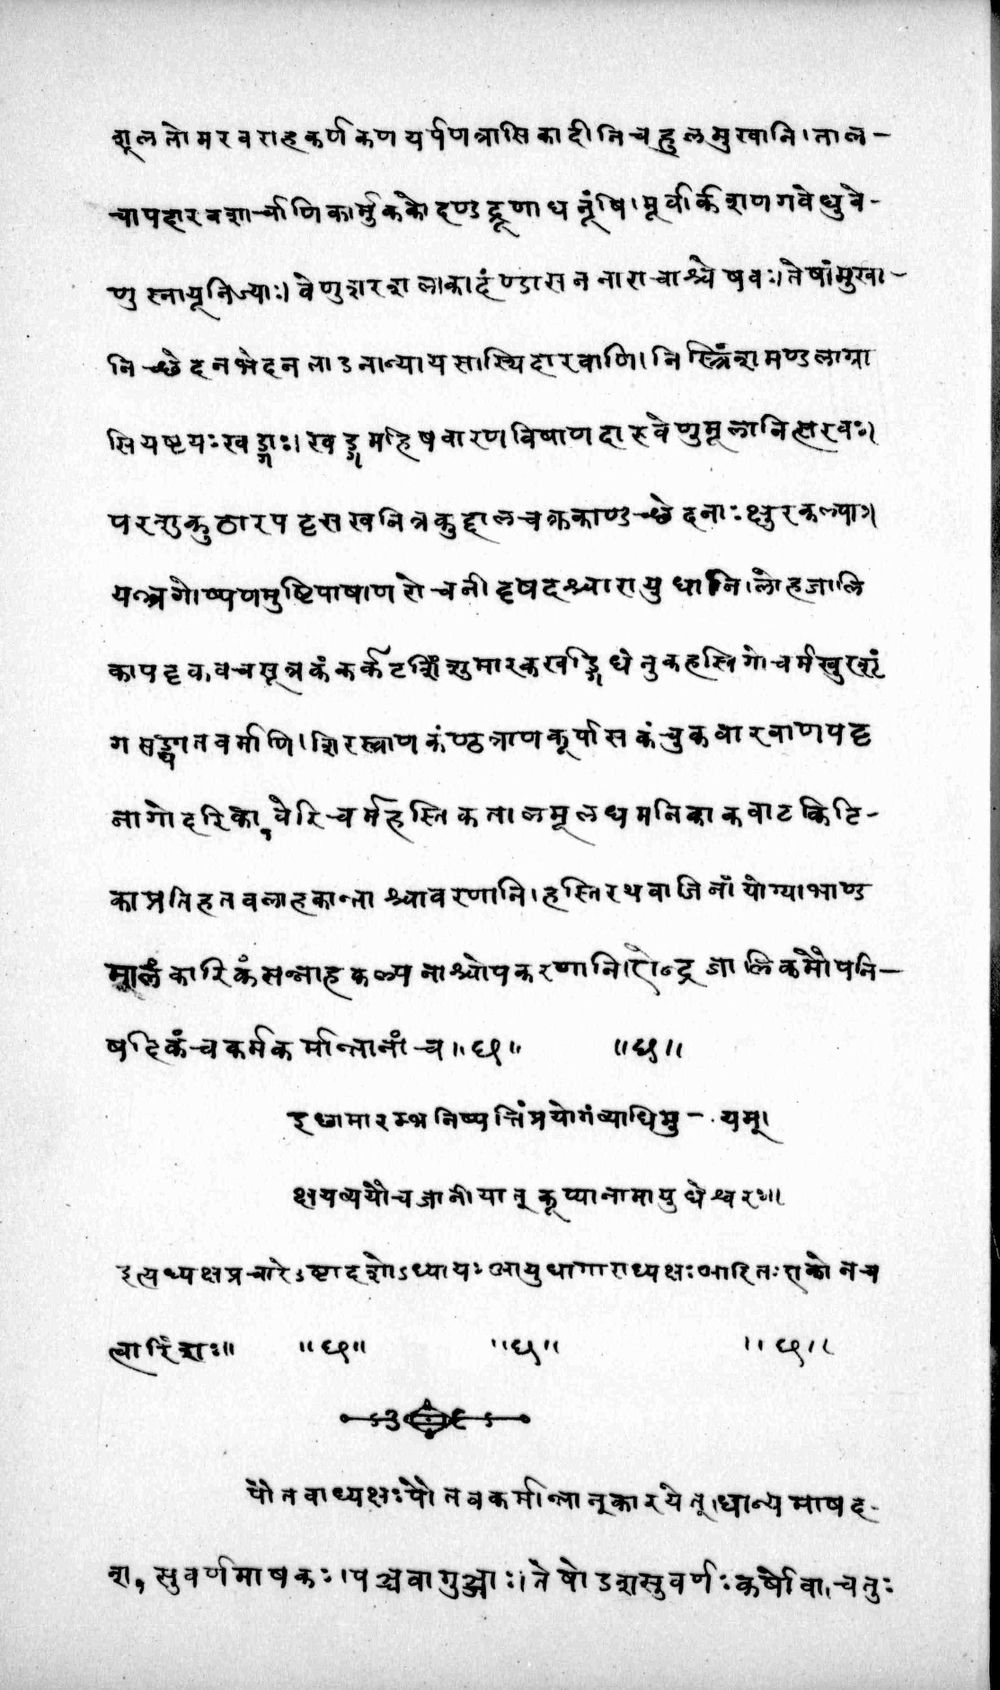 शूलतोमरवराहकर्णकणयर्पणत्रासिकादीनिचहुलमुखानि।ताल-
चापदारवशार्ङ्गाणिकार्मुककोदण्डद्रूणाधनूंषि।मूर्वार्कशणगवेधुवे-
णुस्नायूनिज्याः।वेणुशरशलाकादंण्डासननाराचाश्चेषवः।तेषांमुखा-
निच्छेदनभेदनताडनान्यायसास्थिदारवाणि।निस्त्रिंशमण्डलाग्रा
सियष्टयःखड्गाः।खड्गमहिषवारणविषाणदारुवेणुमूलानित्सरवः।
परशुकुठारपट्टसखनित्रकुद्दालचक्रकाण्डच्छेदनाःक्षुरकल्पाः।
यन्त्रगोष्पणमुष्टिपाषाणरोचनीदृषदश्चारायुधानि।लोहजालि
कापट्टकवचसूत्रकंकर्कटशिंशुमारकखड्गिधेनुकहस्तिगोचर्मखुरशृं
गसङ्घातवर्माणि।शिरस्त्राणकंण्ठत्राणकूर्पासकंचुकवारवाणपट्ट
नागोदरिका,पेरिचर्महस्तिकतालमूलधमनिकाकवाटकिटि-
काप्रतिहतवलाहकान्ताश्चावरणानि।हस्तिरथवाजिनांयोग्याभाण्ड
मालंकारिकंसन्नाहकल्पनाश्चोपकरणानि।ऐन्द्रजालिकमौपनि-
षदिकंचकर्मकर्मान्तानांच॥छ॥ ॥छ॥
इच्छामारम्भनिष्पत्तिंप्रयोगंव्याधिमु-.यम्।
क्षयव्ययौचजानीयात्कूप्यानामायुधेश्वरः॥
इत्यध्यक्षप्रचारेऽष्टादशोऽध्यायःआयुधागाराध्यक्षःआदितःएकोनच
त्वारिंशः॥ ॥छ॥ ॥छ॥ ॥छ॥
पौतवाध्यक्षःपौतवकर्मान्तान्कारयेत्।धान्यमाषद-
श,सुवर्णमाषकः।पञ्चवागुञ्जाः।तेषोडशसुवर्णःकर्षोवा।चतुः